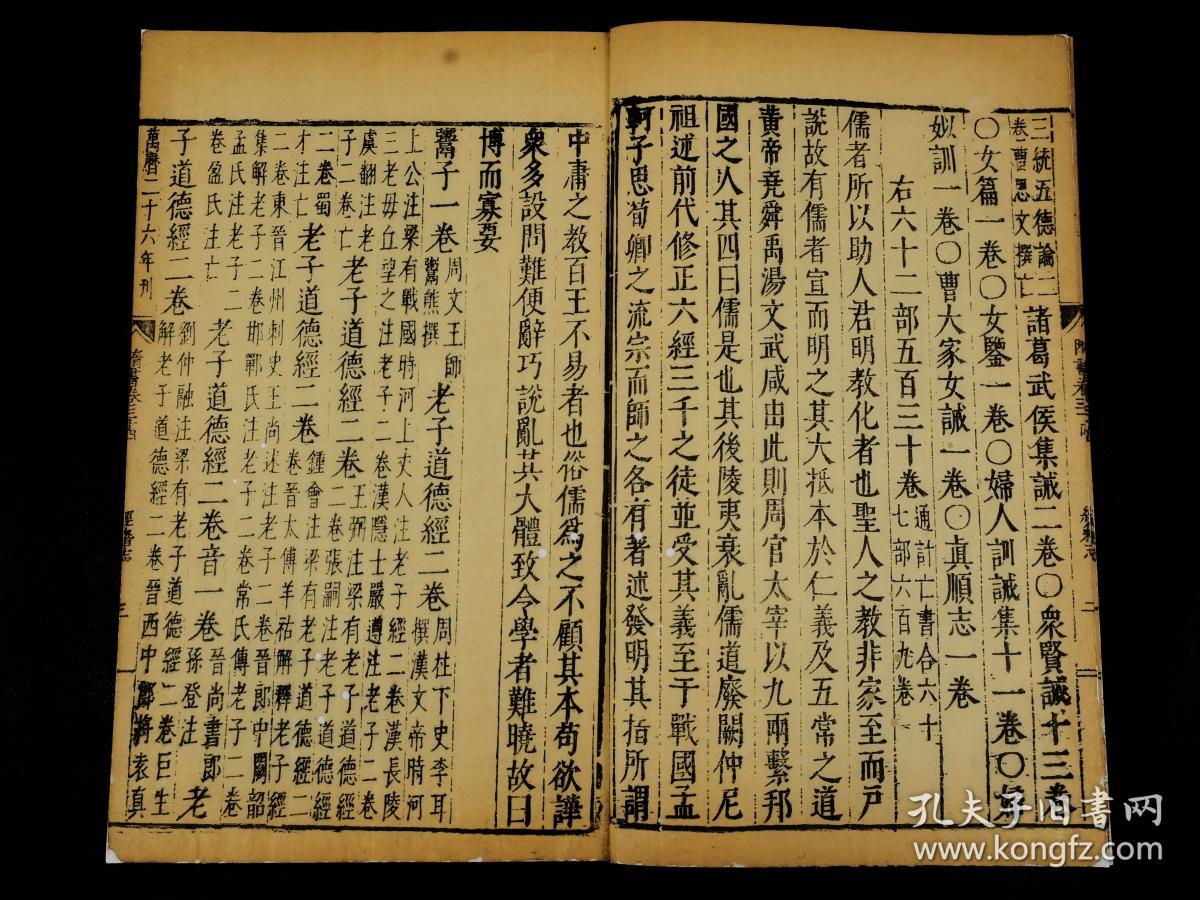 三統五德論二
卷曹思文撰亡
諸葛武侯集誡二卷〇衆賢誡十三卷
〇女篇一卷〇女鑒一卷〇婦人訓誡集十一卷〇娣
姒訓一卷〇曹大家女誡一卷〇眞順志一卷
右六十二部五百三十卷
通計亡書合六十
七部六百九卷
儒者所以助人君明教化者也聖人之教非家至而戶
說故有儒者宣而明之其大抵本於仁義及五常之道
黃帝堯舜禹湯文武咸由此則周官太宰以九兩繫邦
國之人其四曰儒是也其後陵夷衰亂儒道廢闕仲尼
祖述前代修正六經三千之徒並受其義至于戰國孟
軻子思荀卿之流宗而師之各有著述發明其指所謂
中庸之教百王不易者也俗儒爲之不顧其本苟欲譁
衆多設問難便辭巧說亂其大體致令學者難曉故曰
博而寡要
鬻子一卷
周文王師
鬻熊撰
老子道德經二卷
周柱下史李耳
撰漢文帝時河
上公注梁有戰國時河上丈人注老子經二卷漢長陵
三老毋丘望之注老子二卷漢隱士嚴遵注老子二卷
虞翻注老
子二卷亡
老子道德經二卷
王弼注梁有老子道德經
二卷張嗣注老子道德經
二卷蜀
才注亡
老子道德經二卷
鍾會注梁有老子道德經二
卷晉太傅羊祜解釋老子經
二卷東晉江州刺史王尚述注老子二卷晉郎中闞韶
集解老子二卷邯鄲氏注老子二卷常氏傳老子二卷
孟氏注老子二
卷盈氏注亡
老子道德經二卷音一卷
晉尚書郎
孫登注
老
子道德經二卷
劉仲融注梁有老子道德經二卷巨生
解老子道德經二卷晉西中郎將袁真
萬曆二十六年刊
隋書卷三十四
經籍志
三
孔夫子旧书网
www.kongfz.com